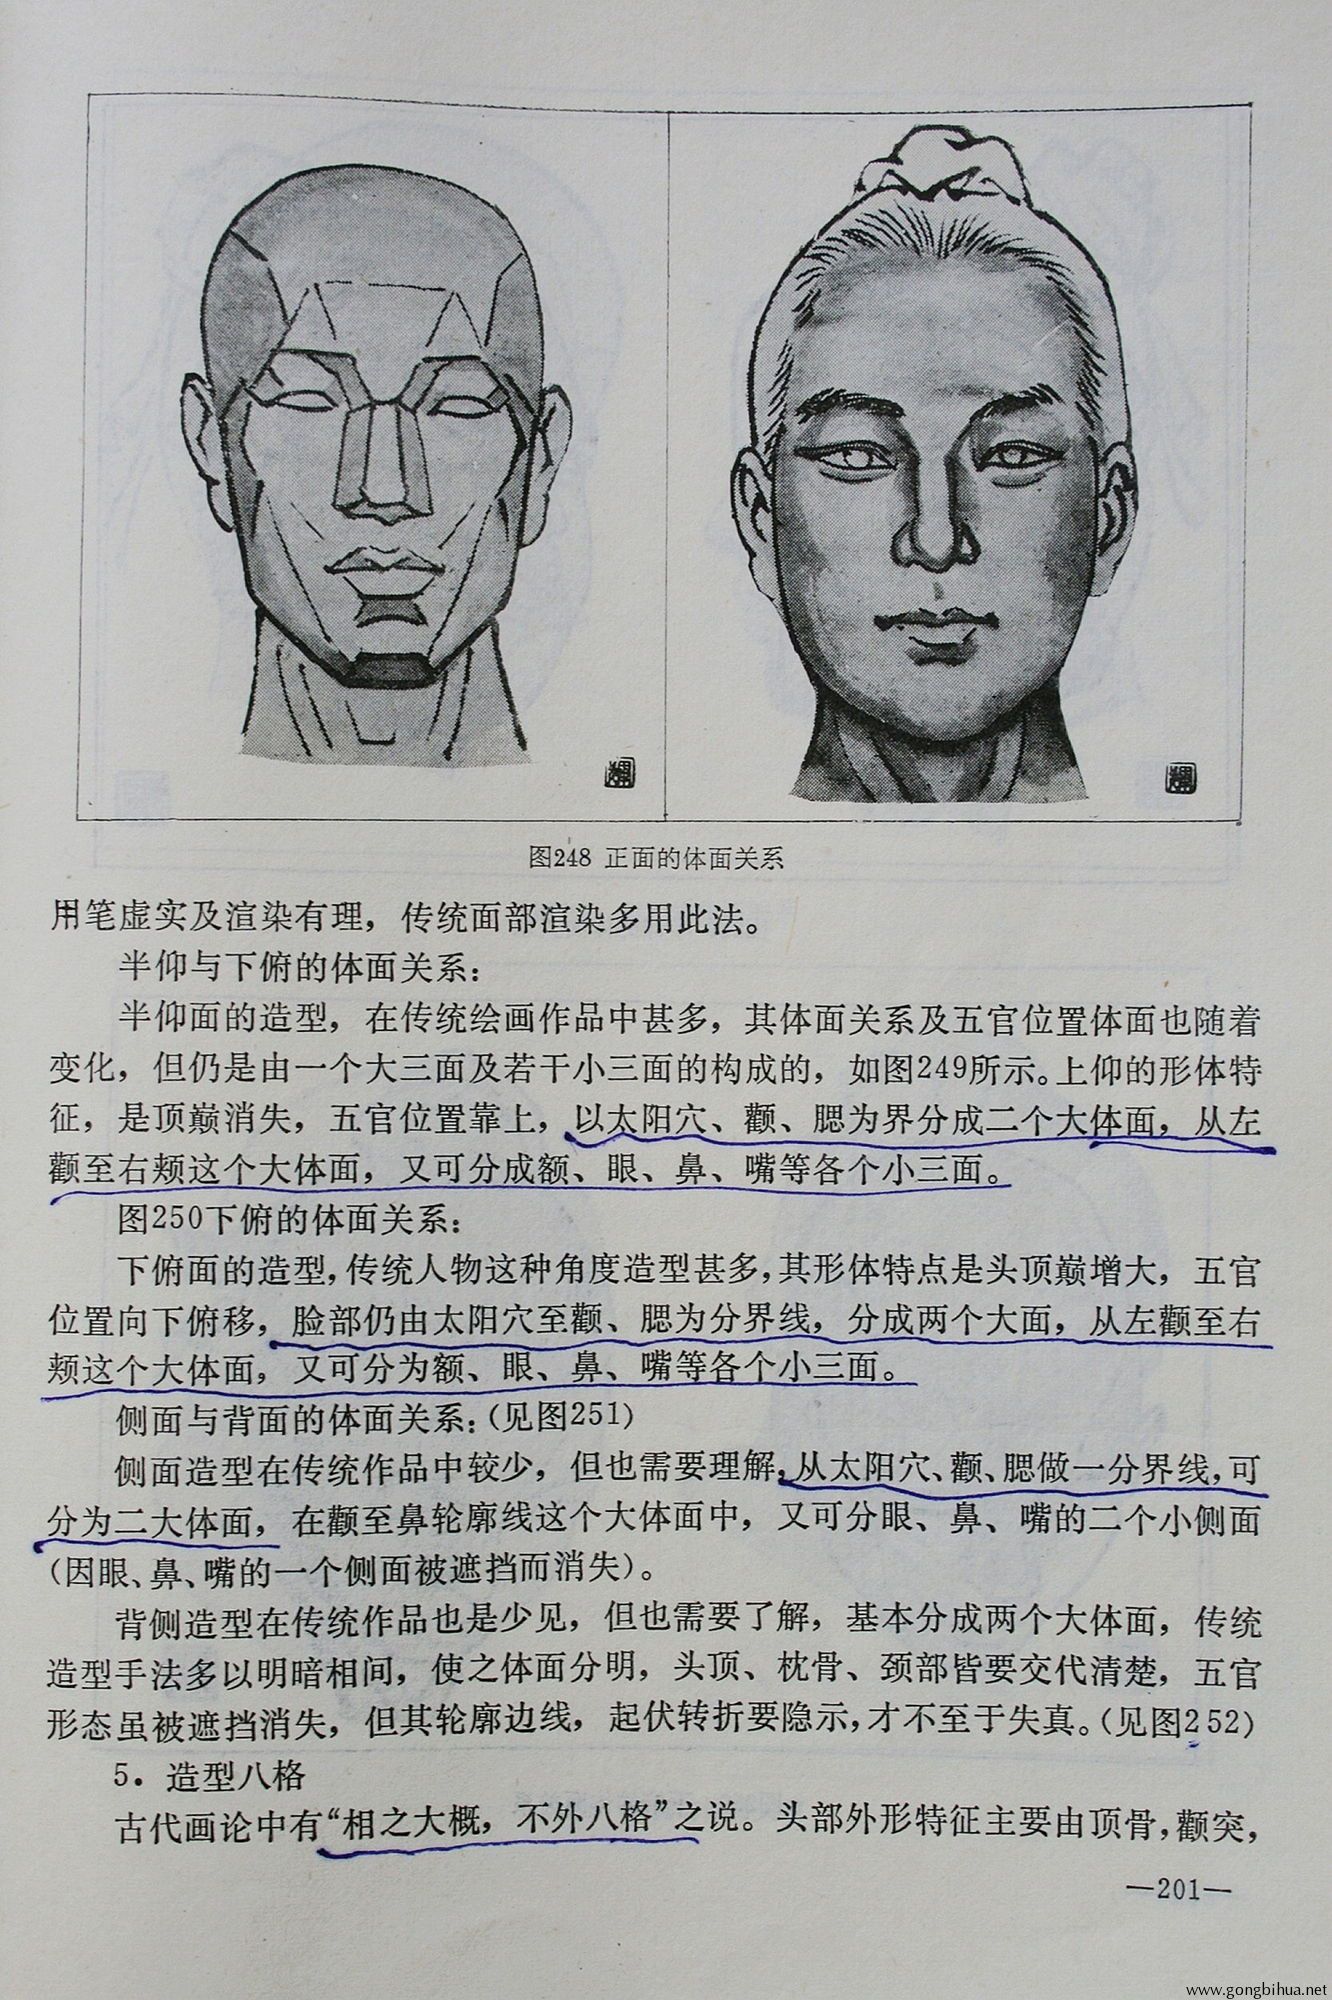 图248 正面的体面关系
用笔虚实及渲染有理，传统面部渲染多用此法。
半仰与下俯的体面关系：
半仰面的造型，在传统绘画作品中甚多，其体面关系及五官位置体面也随着
变化，但仍是由一个大三面及若干小三面的构成的，如图249所示。上仰的形体特
征，是顶巅消失，五官位置靠上，以太阳穴、颧、腮为界分成二个大体面，从左
颧至右颊这个大体面，又可分成额、眼、鼻、嘴等各个小三面。
图250下俯的体面关系：
下俯面的造型，传统人物这种角度造型甚多，其形体特点是头顶巅增大，五官
位置向下俯移，脸部仍由太阳穴至颧、腮为分界线，分成两个大面，从左颧至右
颊这个大体面，又可分为额、眼、鼻、嘴等各个小三面。
侧面与背面的体面关系：（见图251）
侧面造型在传统作品中较少，但也需要理解，从太阳穴、颧、腮做一分界线，可
分为二大体面，在颧至鼻轮廓线这个大体面中，又可分眼、鼻、嘴的二个小侧面
（因眼、鼻、嘴的一个侧面被遮挡而消失）。
背侧造型在传统作品也是少见，但也需要了解，基本分成两个大体面，传统
造型手法多以明暗相间，使之体面分明，头顶、枕骨、颈部皆要交代清楚，五官
形态虽被遮挡消失，但其轮廓边线，起伏转折要隐示，才不至于失真。（见图252）
5．造型八格
古代画论中有“相之大概，不外八格”之说。头部外形特征主要由顶骨，颧突，
—201—
www.gongbihua.net